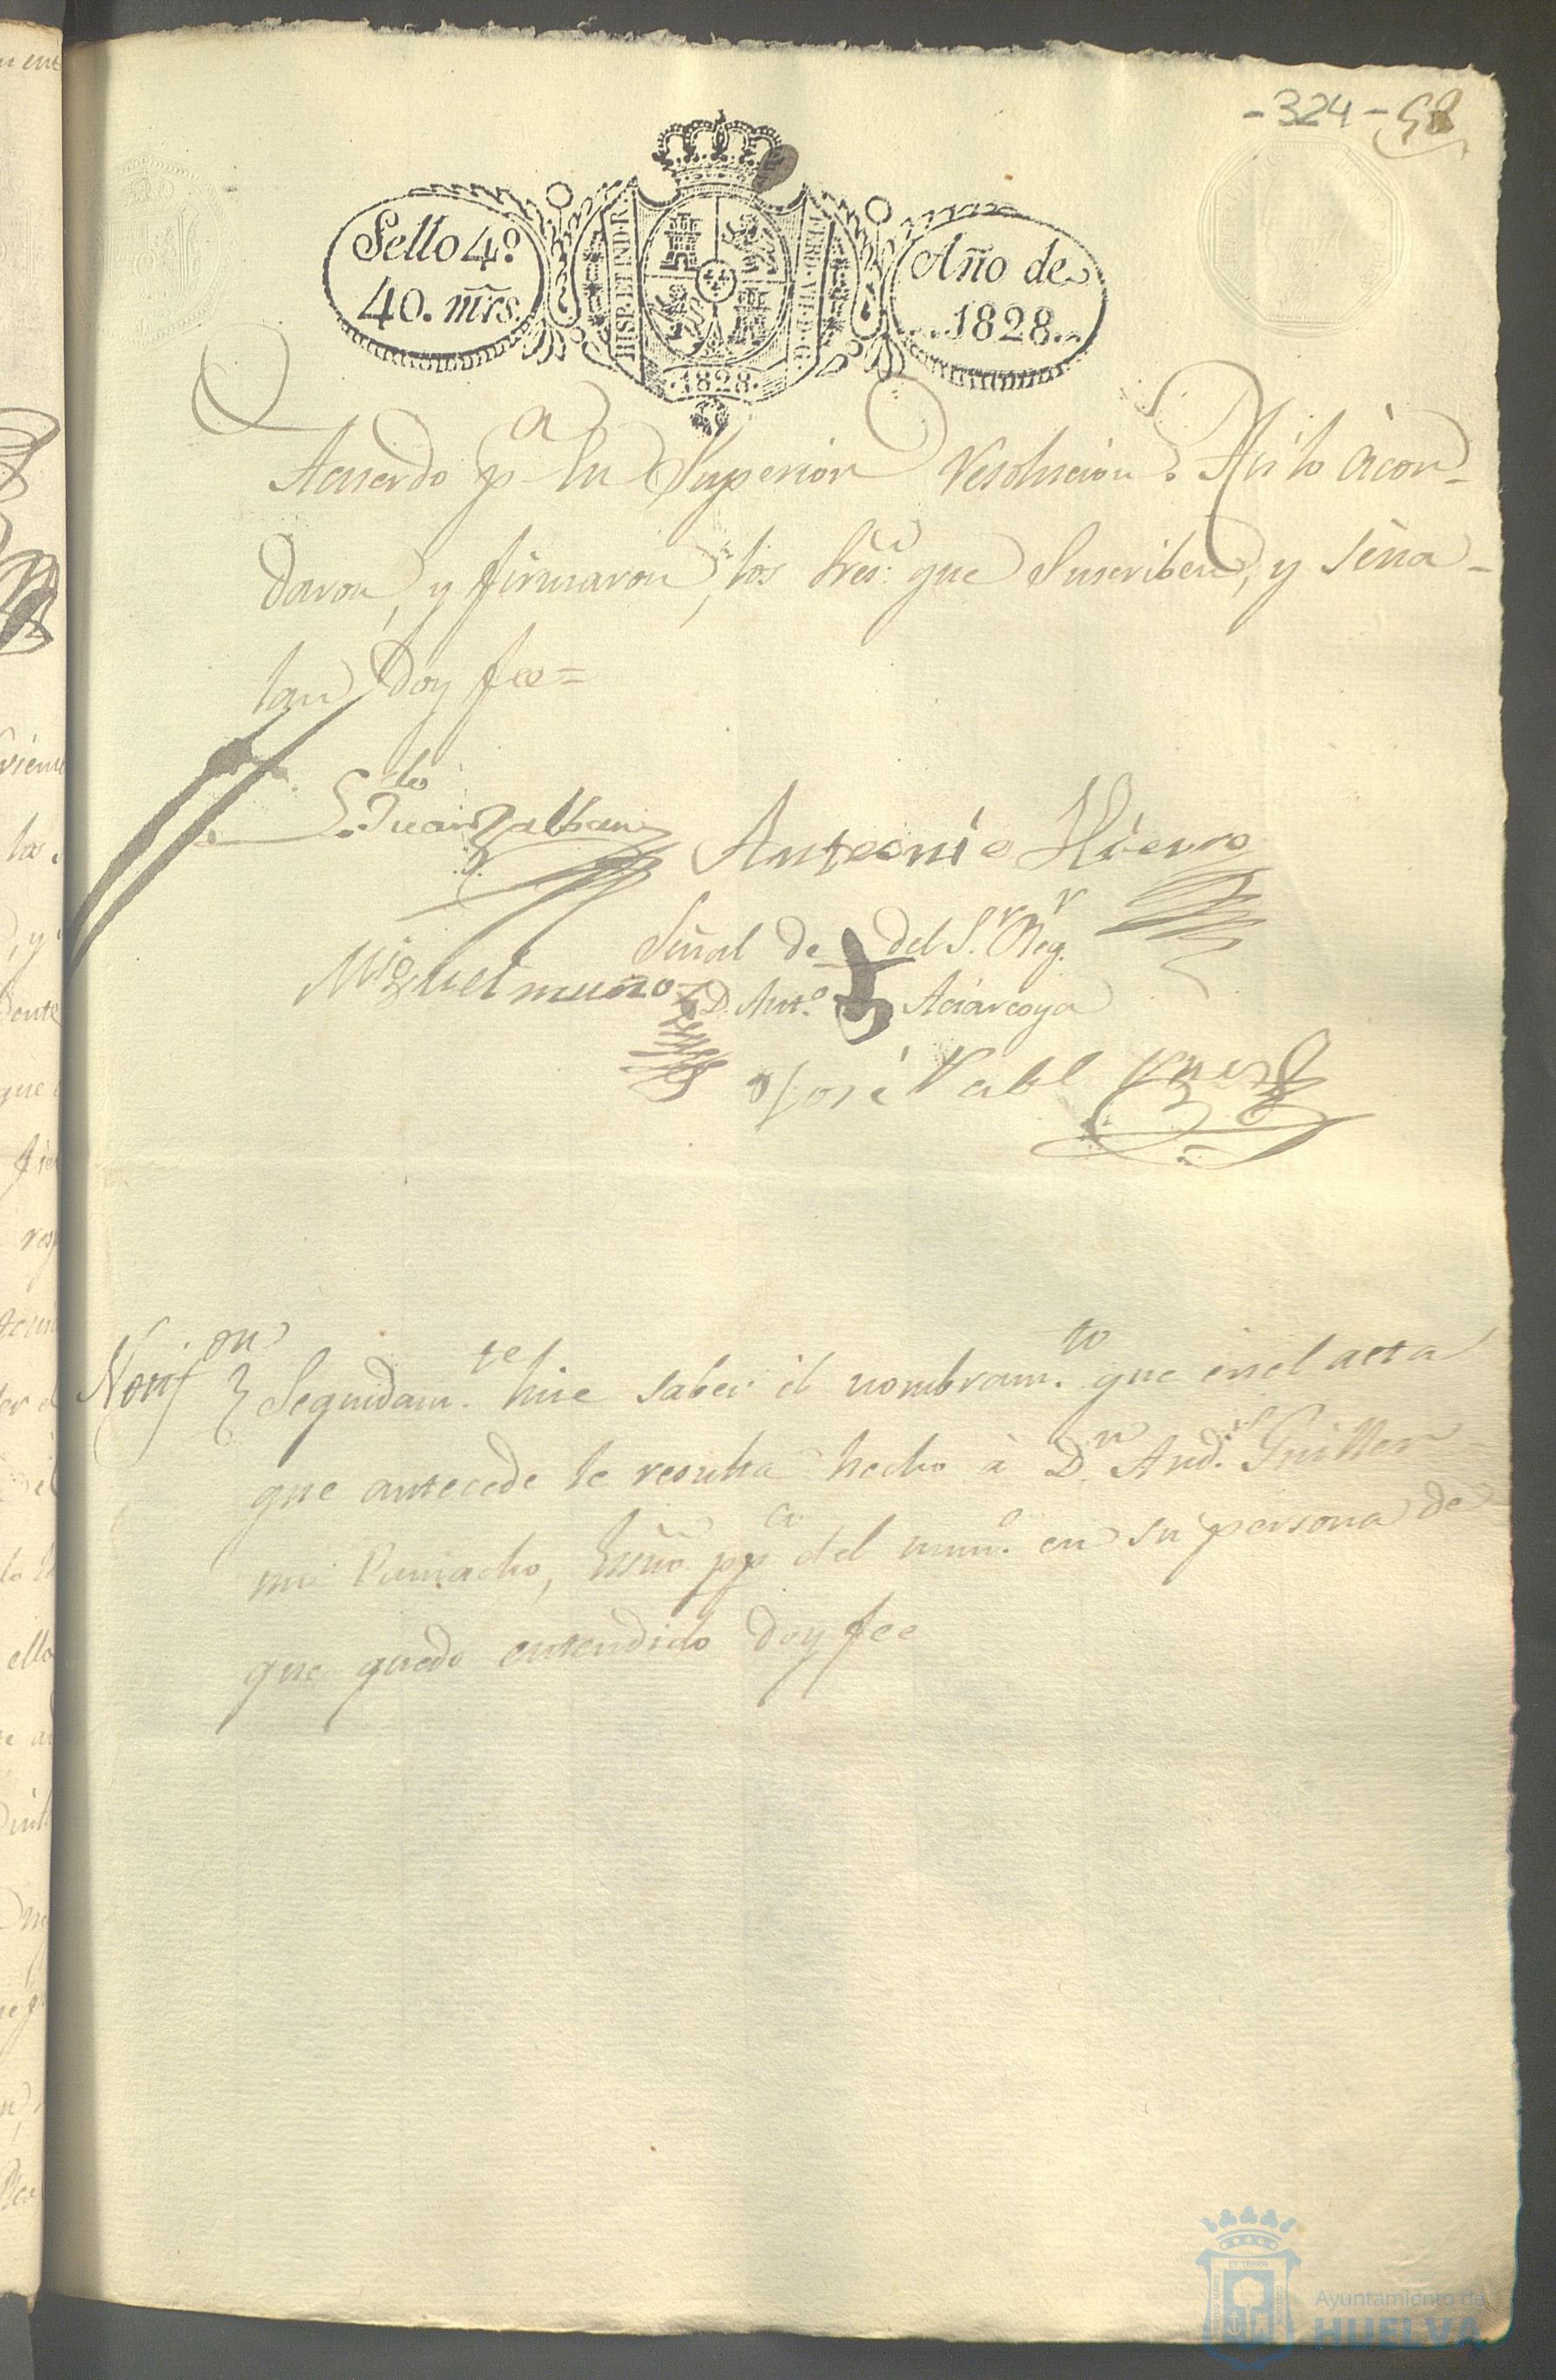 -324- 58
Sello 4.º
40. mrs.
HISP. ET IND. R.
FERD. VII. D. G.
.1828.
Año de
1828.
Acuerdo p.ª la Superior resolucion. Asi lo acor-
daron, y firmaron, los Sres. que Suscriben, y seña-
lan, Doy fee=
Antoonio Hierro
Señal de del S.r Reg.r
Miguel muñoz
D. Ant.º Aciarcoya
José
Notif.on Seguidam.te hice saber el nombram.to que en el acta
que antecede le resulta hecho à D.n And.s Guiller
mo Camacho, del num.º en su persona de
que quedo entendido Doy fee
Ayuntamiento de
HUELVA